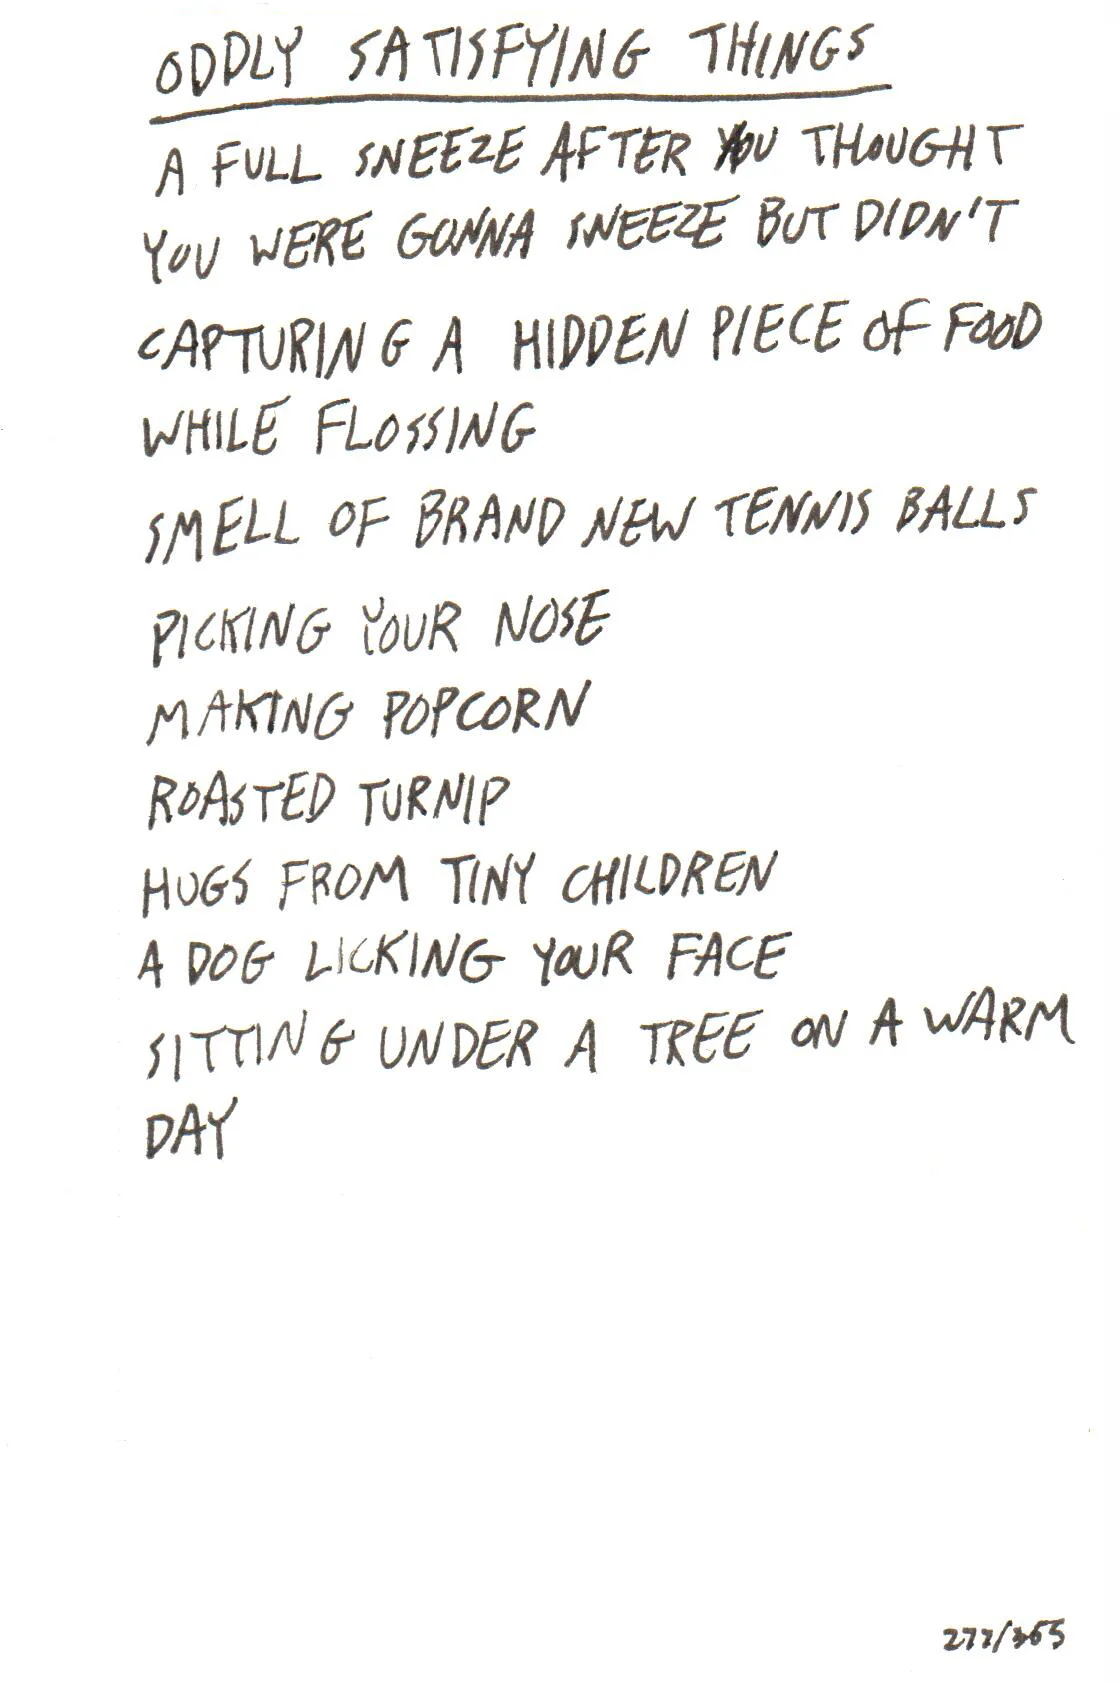 ODDLY SATISFYING THINGS
A FULL SNEEZE AFTER YOU THOUGHT
YOU WERE GONNA SNEEZE BUT DIDN'T
CAPTURING A HIDDEN PIECE OF FOOD
WHILE FLOSSING
SMELL OF BRAND NEW TENNIS BALLS
PICKING YOUR NOSE
MAKING POPCORN
ROASTED TURNIP
HUGS FROM TINY CHILDREN
A DOG LICKING YOUR FACE
SITTING UNDER A TREE ON A WARM
DAY
277/365